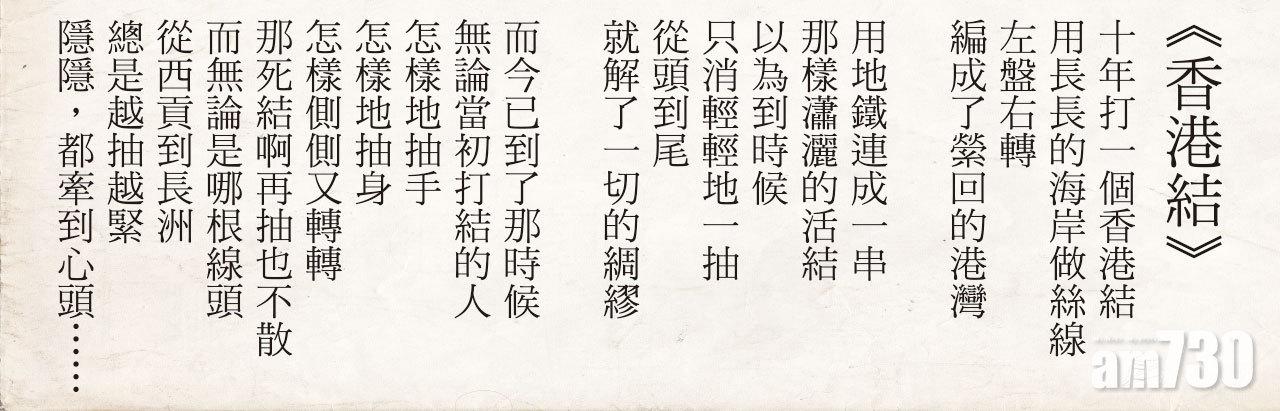 《香港結》
十年打一個香港結
用長長的海岸做絲線
左盤右轉
編成了縈回的港灣
用地鐵連成一串
那樣瀟灑的活結
以為到時候
只消輕輕地一抽
從頭到尾
就解了一切的綢繆
而今已到了那時候
無論當初打結的人
怎樣地抽手
怎樣地抽身
怎樣側側又轉轉
那死結啊再抽也不散
而無論是哪根線頭
從西貢到長洲
總是越抽越緊
隱隱，都牽到心頭……
am730